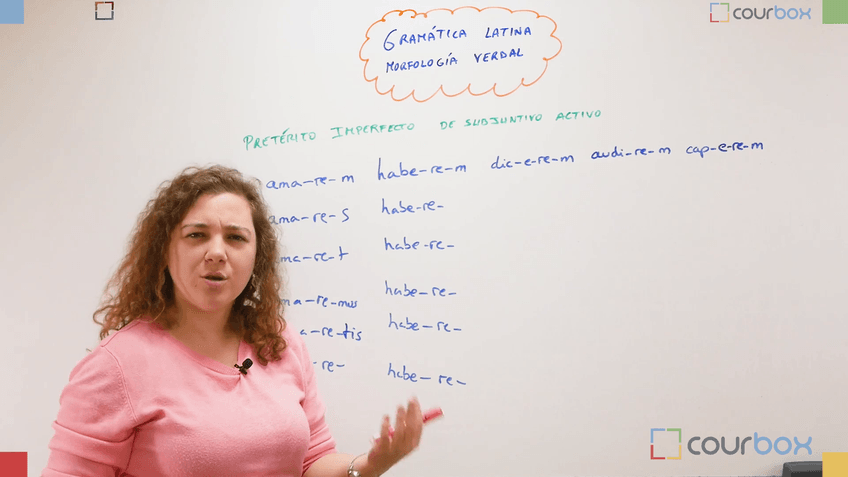 courbox
GRAMÁTICA LATINA
MORFOLOGÍA VERBAL
PRETÉRITO IMPERFECTO DE SUBJUNTIVO ACTIVO
ama-re-m habe-re-m dic-e-re-m audi-re-m cap-e-re-m
ama-re-s habe-re-
ma-re-t habe-re-
ma-re-mus habe-re-
a-re-tis habe-re-
-re- habe-re-
courbox